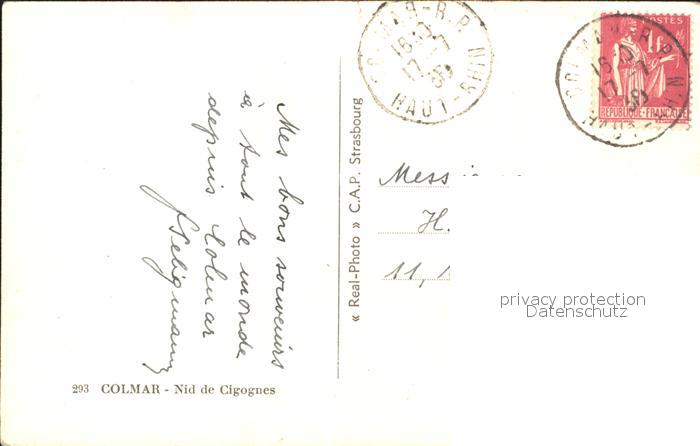 Mes bons souvenirs
à tout le monde
depuis Colmar
293 COLMAR - Nid de Cigognes
« Real-Photo » C.A.P. Strasbourg
COLMAR-R.P.
17-7
HAUT-RHIN
POSTES
1f
REPUBLIQUE-FRANÇAISE
COLMAR-R.P.
17-7
HAUT-RHIN
Mess
H.
11, 1
privacy protection
Datenschutz